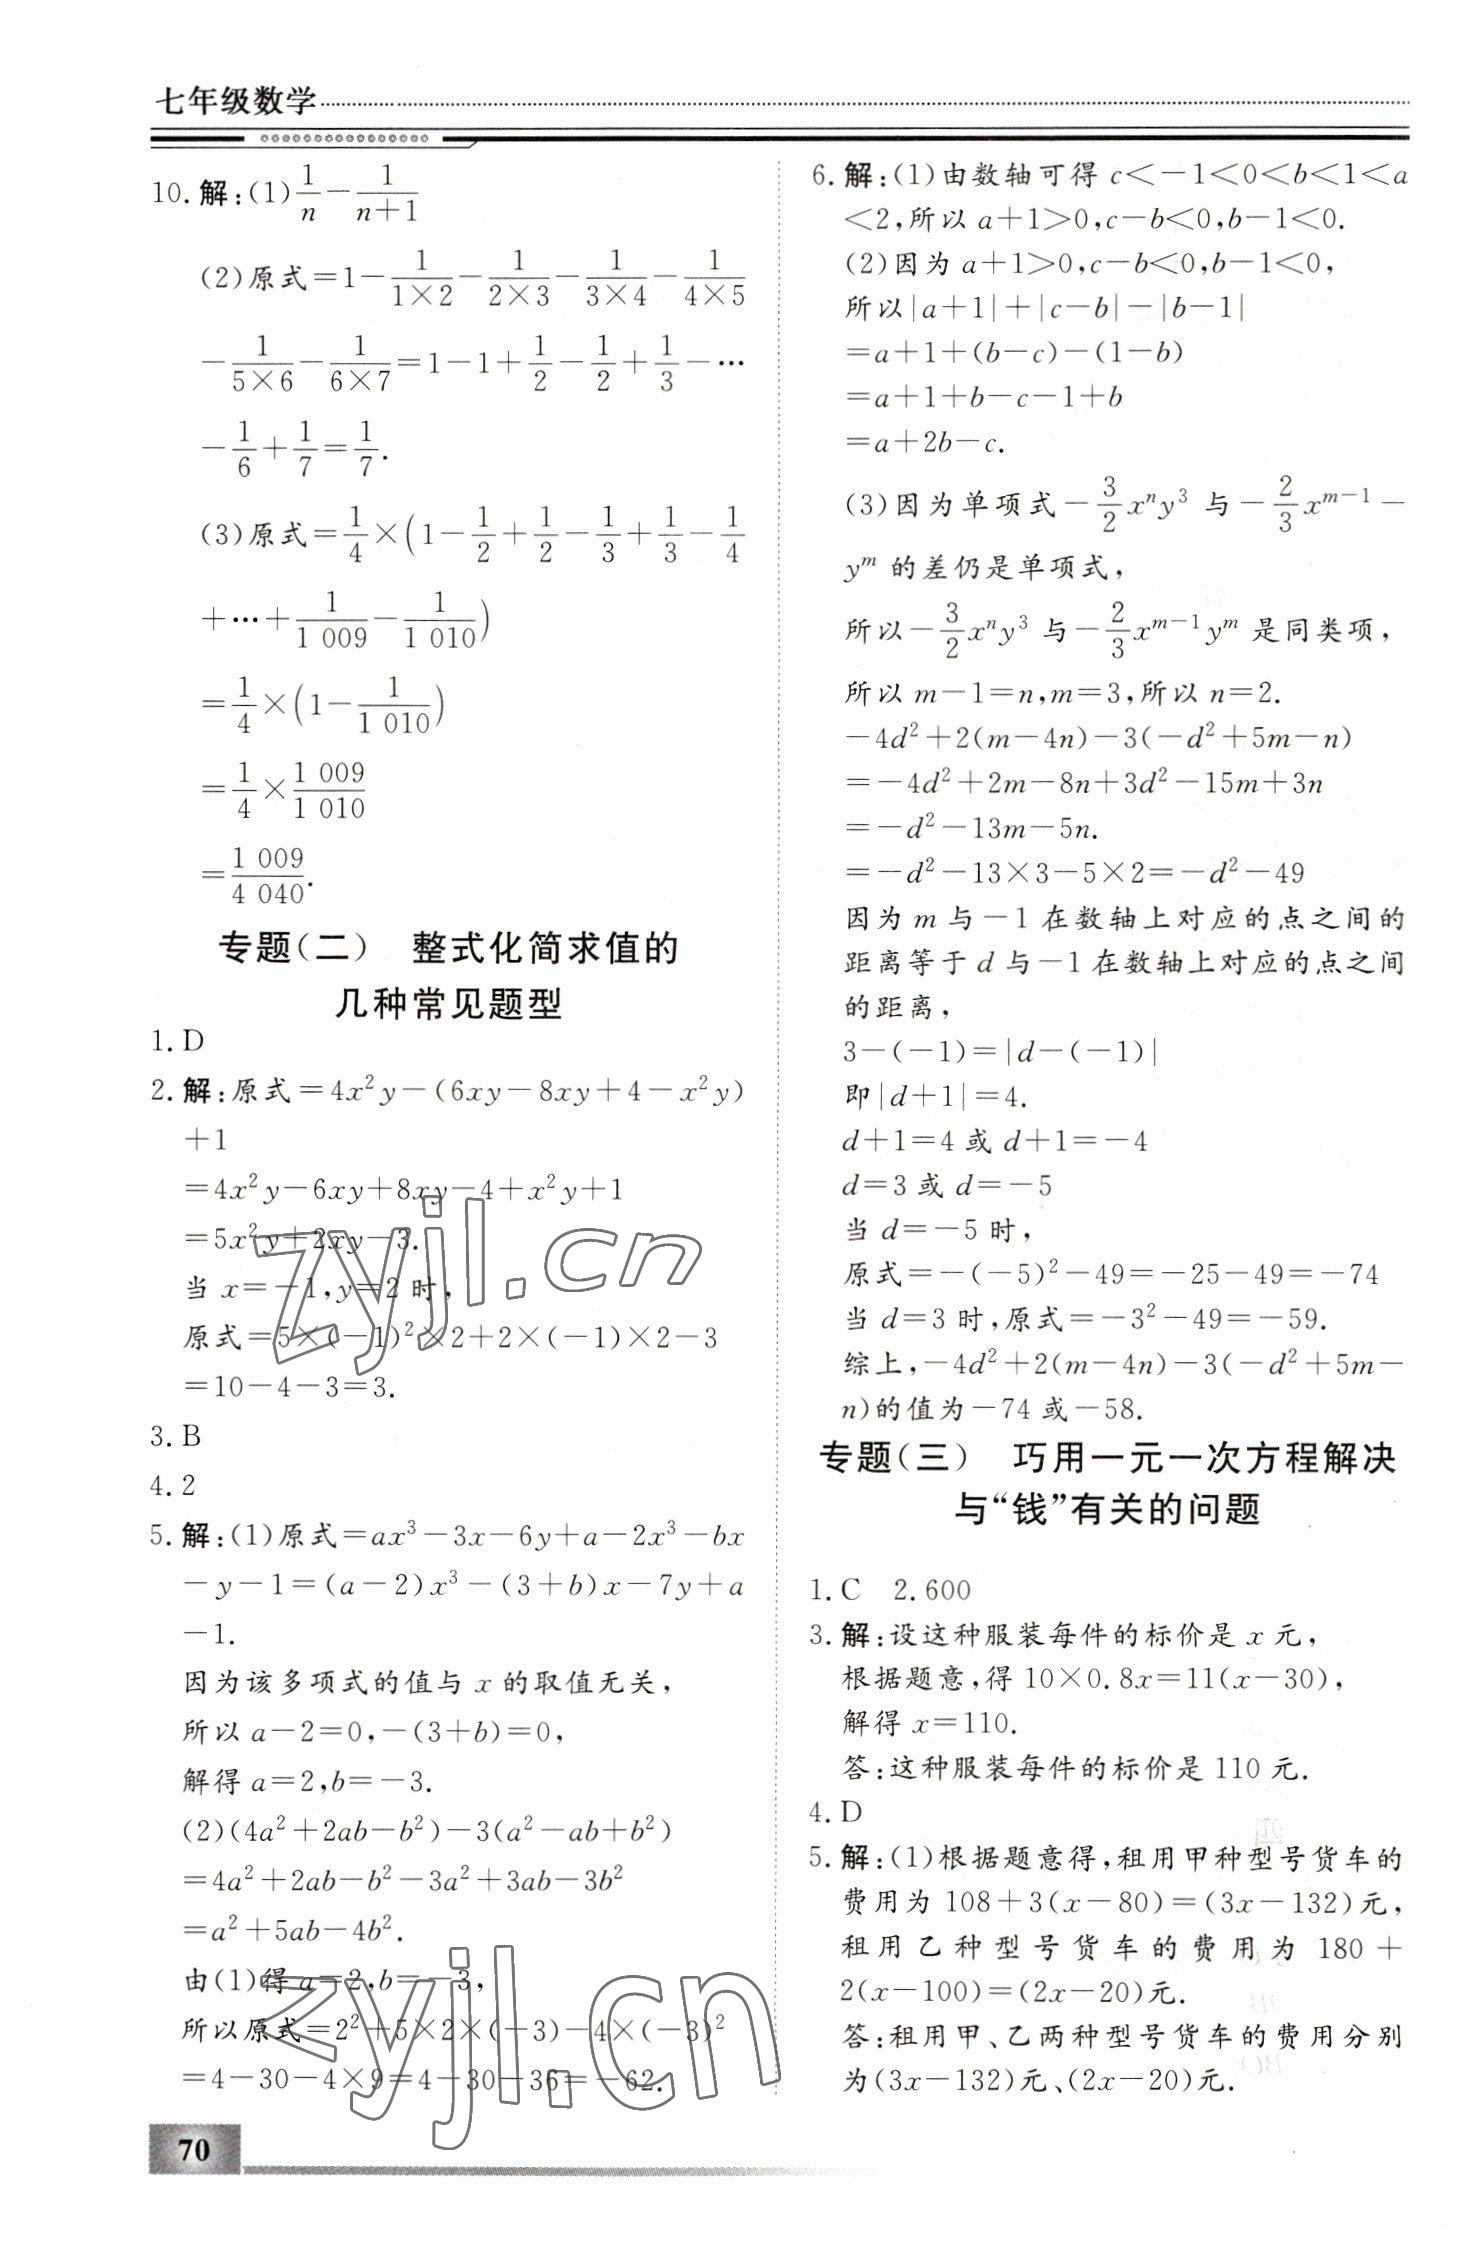 七年级数学
10. 解:(1)1/n－1/(n＋1)
(2)原式＝1－1/(1×2)－1/(2×3)－1/(3×4)－1/(4×5)
－1/(5×6)－1/(6×7)＝1－1＋1/2－1/2＋1/3－…
－1/6＋1/7＝1/7.
(3)原式＝1/4×(1－1/2＋1/2－1/3＋1/3－1/4
＋…＋1/1 009－1/1 010)
＝1/4×(1－1/1 010)
＝1/4×1 009/1 010
＝1 009/4 040.
专题(二)　整式化简求值的
几种常见题型
1. D
2. 解:原式＝4x²y－(6xy－8xy＋4－x²y)
＋1
＝4x²y－6xy＋8xy－4＋x²y＋1
＝5x²y＋2xy－3.
当 x＝－1,y＝2 时,
原式＝5×(－1)²×2＋2×(－1)×2－3
＝10－4－3＝3.
3. B
4. 2
5. 解:(1)原式＝ax³－3x－6y＋a－2x³－bx
－y－1＝(a－2)x³－(3＋b)x－7y＋a
－1.
因为该多项式的值与 x 的取值无关,
所以 a－2＝0,－(3＋b)＝0,
解得 a＝2,b＝－3.
(2)(4a²＋2ab－b²)－3(a²－ab＋b²)
＝4a²＋2ab－b²－3a²＋3ab－3b²
＝a²＋5ab－4b².
由(1)得 a＝2,b＝－3,
所以原式＝2²＋5×2×(－3)－4×(－3)²
＝4－30－4×9＝4－30－36＝－62.
6. 解:(1)由数轴可得 c＜－1＜0＜b＜1＜a
＜2,所以 a＋1＞0,c－b＜0,b－1＜0.
(2)因为 a＋1＞0,c－b＜0,b－1＜0,
所以|a＋1|＋|c－b|－|b－1|
＝a＋1＋(b－c)－(1－b)
＝a＋1＋b－c－1＋b
＝a＋2b－c.
(3)因为单项式－3/2xⁿy³ 与－2/3xᵐ⁻¹－
yᵐ 的差仍是单项式,
所以－3/2xⁿy³ 与－2/3xᵐ⁻¹yᵐ 是同类项,
所以 m－1＝n,m＝3,所以 n＝2.
－4d²＋2(m－4n)－3(－d²＋5m－n)
＝－4d²＋2m－8n＋3d²－15m＋3n
＝－d²－13m－5n.
＝－d²－13×3－5×2＝－d²－49
因为 m 与－1 在数轴上对应的点之间的
距离等于 d 与－1 在数轴上对应的点之间
的距离,
3－(－1)＝|d－(－1)|
即|d＋1|＝4.
d＋1＝4 或 d＋1＝－4
d＝3 或 d＝－5
当 d＝－5 时,
原式＝－(－5)²－49＝－25－49＝－74
当 d＝3 时,原式＝－3²－49＝－59.
综上,－4d²＋2(m－4n)－3(－d²＋5m－
n)的值为－74 或－58.
专题(三)　巧用一元一次方程解决
与“钱”有关的问题
1. C　2. 600
3. 解:设这种服装每件的标价是 x 元,
根据题意,得 10×0.8x＝11(x－30),
解得 x＝110.
答:这种服装每件的标价是 110 元.
4. D
5. 解:(1)根据题意得,租用甲种型号货车的
费用为 108＋3(x－80)＝(3x－132)元,
租用乙种型号货车的费用为 180＋
2(x－100)＝(2x－20)元.
答:租用甲、乙两种型号货车的费用分别
为(3x－132)元、(2x－20)元.
70
zyjl.cn
zyjl.cn